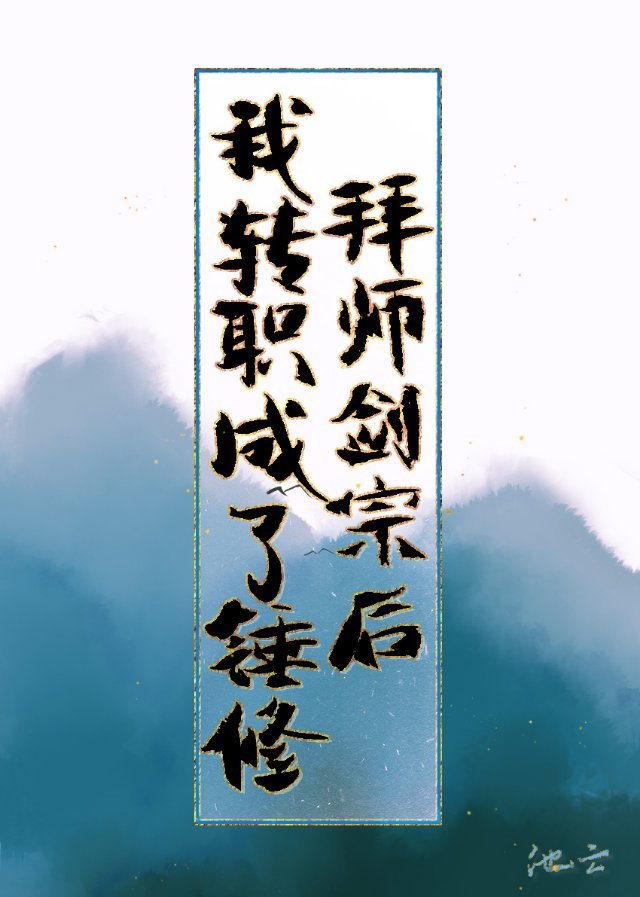 拜师剑宗后
我转职成了锤修
池云